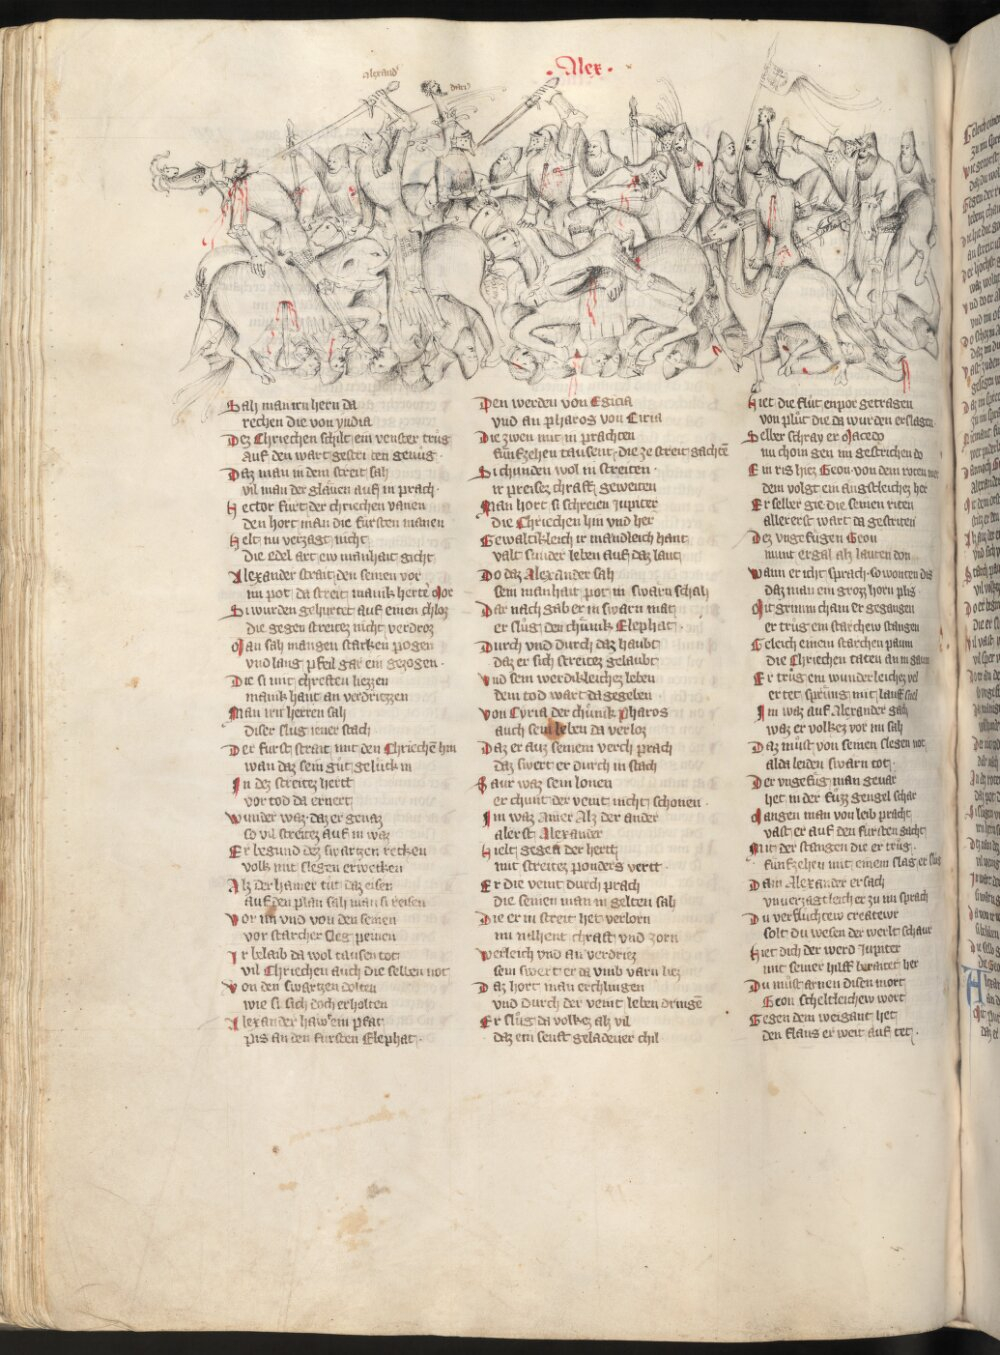 Alex
Alexand
dari
Sach man irn hern da
rechen die von yndia
Dez Chriechen schilt ein venster trug
Auf den wart gestriten genug
Daz man in dem streit sah
vil man der glauen auf in prach
Hector furt der chriechen vanen
den hort man die fursten manen
Helt nu verzagt nicht
die edel art ew manhait gicht
Alexander strait den seinen vor
im pot da streit manik herter Mor
Si wurden gehurtet auf einen chloz
die gegen streitez nicht verdroz
Man sah mangen starken pogen
vnd lang pfeil gar ein gezogen
Die si mit chreften liezzen
manik haut an verdriezzen
Man irn herren sah
diser slug iener stach
Der furst strait mit den Chriechen hin
wan daz sein gut geluck in
In dez streitez hertt
vor tod da ernert
Wunder waz daz er genaz
so vil streitez auf in waz
Er begund dez swartzen recken
volk mit slegen erwecken
Alz der hamer tut daz eisen
auf den plan sah man si reisen
Vor im vnd von den seinen
vor starcher sleg peinen
Ir belaib da wol tausent tot
vil Chriechen auch die selben not
Von den swartzen dolten
wie si sich doch erholten
Alexander haw em pfat
pis an den fursten Elephat
Den werden von Egicia
vnd an pharos von Ciria
Die zwen mit in prachten
funfzehen tausent die ze streit gachten
Si chunden wol in streiten
ir preisez chraft geweiten
Man hort si schreien Jupiter
die Chriechen hin vnd her
Gewaltikleich ir mandleich hant
valt sunder leben auf daz lant
Do daz Alexander sah
sein manhait pot in swarn schah
Dar nach gab er in swarn mat
er slug den chunik Elephat
Durch vnd durch daz haubt
daz er sich streitez gelaubt
Vnd sein werdikleichez leben
dem tod wart da gegeben
Von Cyria der chunik Pharos
auch sein leben da verloz
Daz er auz seinem verch prach
daz swert er durch in stach
Saur waz sein lonen
er chunt der veint nicht schonen
Im waz Amer Alz der ander
alerst Alexander
Hielt gegen der hertt
mit streitez ponders vertt
Er die veint durch prach
die seinen man in gelten sah
Die er in streit het verlorn
im nilhent chraft vnd zorn
Werleich vnd an verdriez
sein swert er da vmb varn liez
Daz hort man erchlingen
vnd durch der veint leben dringen
Er slug da volkez alz vil
daz ein senft geladener chil
Hiet die flut enpor getragen
von plut die da wurden erslagen
Selber schray er Macedo
nu choin gen im gestrichen do
Ein ris hiez Geon von dem roten mer
dem volgt ein angstleichez her
Er selber gie die seinen riten
allererst wart da gestriten
Dez vngefugen Geon
munt ergal alz lauten don
Wann er icht sprach so wonten dis
daz man ein groz horn plis
Mit grimm cham er gegangen
er trug ein starchew stangen
Geleich einem starchen paum
die Chriechen taten an im gaum
Er trug ein wunderleichez vel
er tet sprung mit lauf snel
Im waz auf Alexander gah
waz er volkez vor im sah
Daz must von seinen slegen not
alda leiden swarn tot
Der vngefug man gevar
het in der fuzz gengel schar
Mangen man von leib pracht
vast er auf den fursten gacht
Mit der stangen die er trug
funfzehen mit einem slag er slug
Dam Alexander ersach
vnuerzagtleich er zu im sprach
Du verfluchtew createwr
solt du wesen der werlt schawr
Hiet dich der werd Jupiter
mit seiner hilff beraitet her
Du must arnen disen mort
Geon scheltleichew wort
Gegen dem weigant het
den flans er weit auf tet